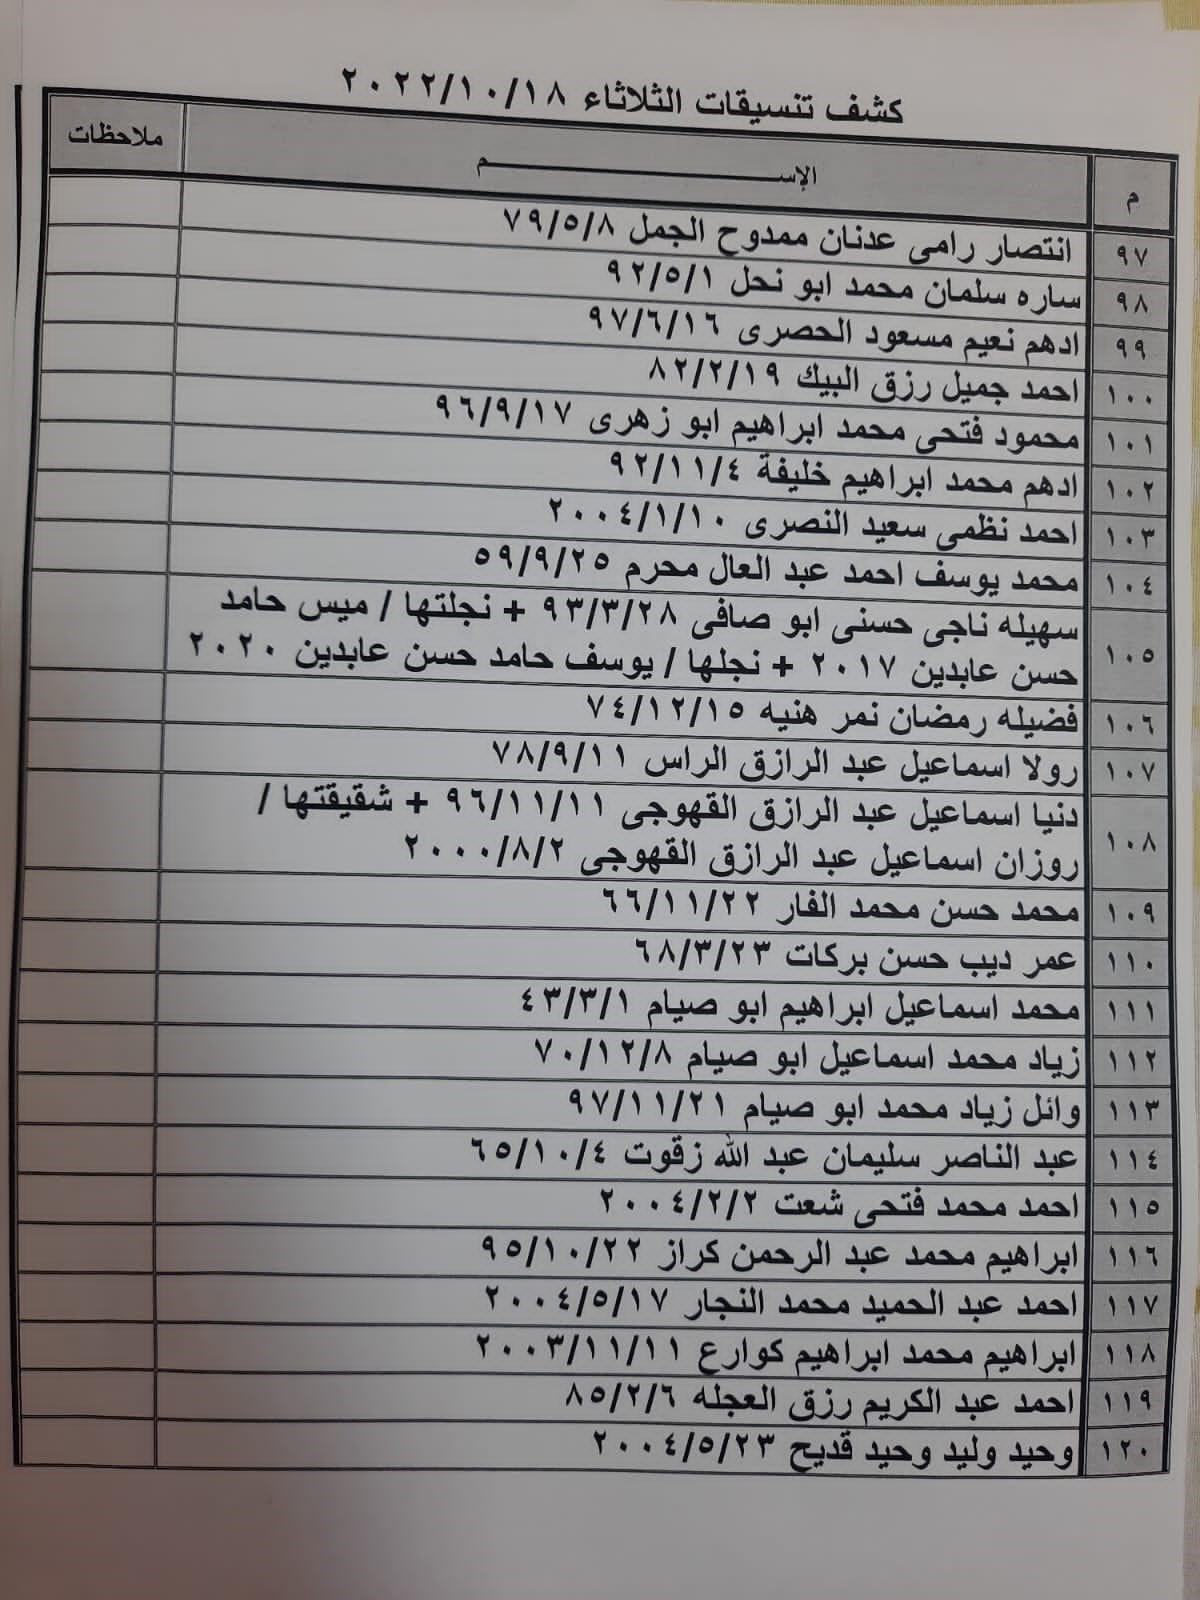 كشف تنسيقات الثلاثاء ٢٠٢٢/١٠/١٨
م الإســـــــــــــــــم ملاحظات
٩٧ انتصار رامى عدنان ممدوح الجمل ٧٩/٥/٨
٩٨ ساره سلمان محمد ابو نحل ٩٢/٥/١
٩٩ ادهم نعيم مسعود الحصرى ٩٧/٦/١٦
١٠٠ احمد جميل رزق البيك ٨٢/٢/١٩
١٠١ محمود فتحى محمد ابراهيم ابو زهرى ٩٦/٩/١٧
١٠٢ ادهم محمد ابراهيم خليفة ٩٢/١١/٤
١٠٣ احمد نظمى سعيد النصرى ٢٠٠٤/١/١٠
١٠٤ محمد يوسف احمد عبد العال محرم ٥٩/٩/٢٥
١٠٥ سهيله ناجى حسنى ابو صافى ٩٣/٣/٢٨ + نجلتها / ميس حامد
حسن عابدين ٢٠١٧ + نجلها / يوسف حامد حسن عابدين ٢٠٢٠
١٠٦ فضيله رمضان نمر هنيه ٧٤/١٢/١٥
١٠٧ رولا اسماعيل عبد الرازق الراس ٧٨/٩/١١
١٠٨ دنيا اسماعيل عبد الرازق القهوجى ٩٦/١١/١١ + شقيقتها /
روزان اسماعيل عبد الرازق القهوجى ٢٠٠٠/٨/٢
١٠٩ محمد حسن محمد الفار ٦٦/١١/٢٢
١١٠ عمر ديب حسن بركات ٦٨/٣/٢٣
١١١ محمد اسماعيل ابراهيم ابو صيام ٤٣/٣/١
١١٢ زياد محمد اسماعيل ابو صيام ٧٠/١٢/٨
١١٣ وائل زياد محمد ابو صيام ٩٧/١١/٢١
١١٤ عبد الناصر سليمان عبد الله زقوت ٦٥/١٠/٤
١١٥ احمد محمد فتحى شعت ٢٠٠٤/٢/٢
١١٦ ابراهيم محمد عبد الرحمن كراز ٩٥/١٠/٢٢
١١٧ احمد عبد الحميد محمد النجار ٢٠٠٤/٥/١٧
١١٨ ابراهيم محمد ابراهيم كوارع ٢٠٠٣/١١/١١
١١٩ احمد عبد الكريم رزق العجله ٨٥/٢/٦
١٢٠ وحيد وليد وحيد قديح ٢٠٠٤/٥/٢٣